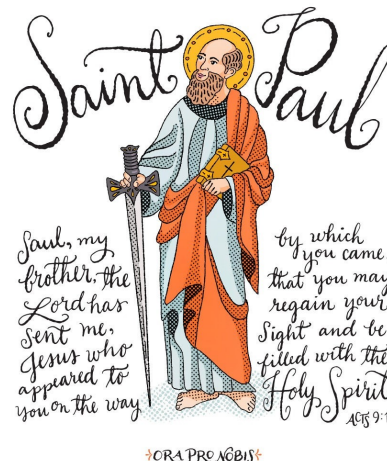 Saint Paul
Saul, my
brother, the
Lord has
sent me,
Jesus who
appeared to
you on the way
by which
you came
that you may
regain your
Sight and be
filled with the
Holy Spirit
ACTS 9:1
ORA PRO NOBIS